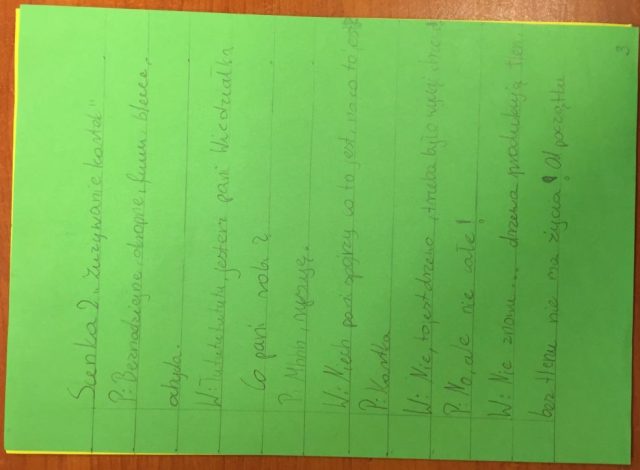 Scenka 2 „Zużywanie kartek"
P: Beznadziejne, okropne, fuuu, bleee,
ohyda.
W: Tututututu, jestem pani Wiedzialska
Co pani robi?
P: Mmm, rysuję.
W: Niech pani spojrzy co to jest, no co to jest
P: Kartka
W: Nie, to jest drzewo, trzeba było wyciąć drzewo
P: No, ale nie całe!
W: Nic znowu... drzewa produkują tlen
bez tlenu nie ma życia! Od początku
3